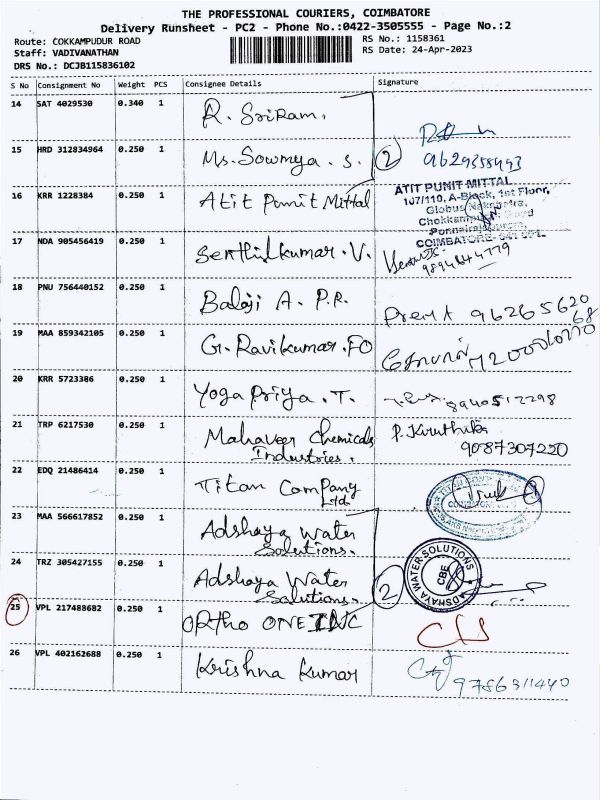 THE PROFESSIONAL COURIERS, COIMBATORE
Delivery Runsheet - PC2 - Phone No.:0422-3505555 - Page No.:2
Route: COKKAMPUDUR ROAD
RS No.: 1158361
Staff: VADIVANATHAN
RS Date: 24-Apr-2023
DRS No.: DCJB115836102
S No Consignment No Weight PCS Consignee Details Signature
14 SAT 4029530 0.340 1 R. Sriram.
15 HRD 312834964 0.250 1 Ms. Sowmya . S. 2
16 KRR 1228384 0.250 1 Atit Punit Mittal
ATIT PUNIT MITTAL
107/110, A-Block, 1st Floor,
Globus
COIMBATORE
17 NDA 905456419 0.250 1 Senthilkumar . V.
18 PNU 756440152 0.250 1 Balaji A. P.R.
Prem A 96265620
68
19 MAA 859342105 0.250 1 G. Ravikumar. FO
20 KRR 5723386 0.250 1 Yoga Priya . T.
8940512298
21 TRP 6217530 0.250 1 Mahaveer Chemicals
Industries.
P. Kiruthika
9087307220
22 EDQ 21486414 0.250 1 Titan Company
Ltd
23 MAA 566617852 0.250 1 Adshaya Water
Solutions.
24 TRZ 305427155 0.250 1 Adshaya Water
Solutions. 2
ADSHAYA WATER SOLUTIONS
CBE
25 VPL 217488682 0.250 1 Ortho ONE INC
26 VPL 402162688 0.250 1 Krishna Kumar
9786311440